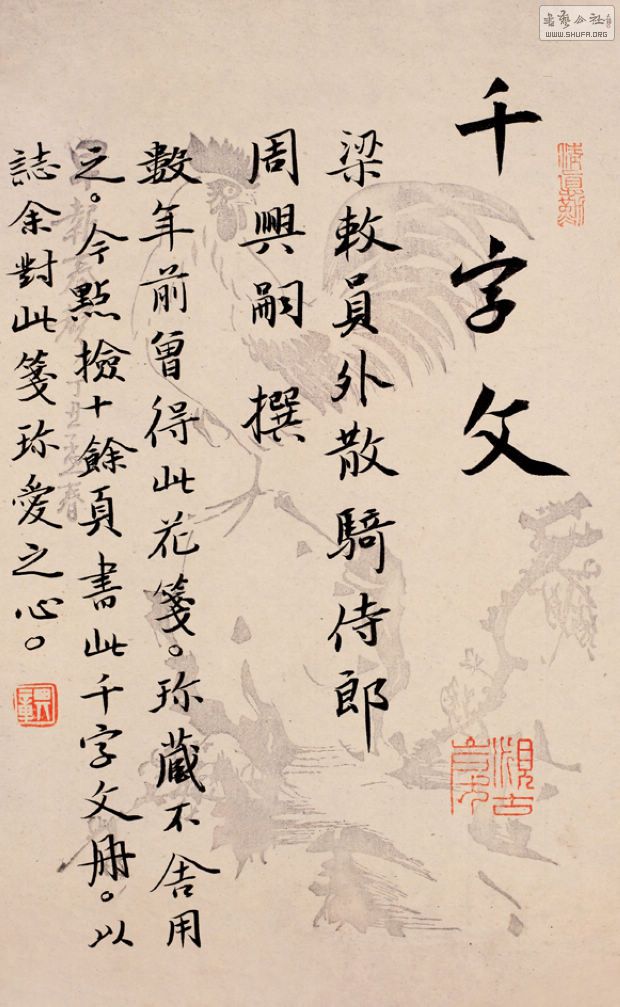 千字文
梁敕員外散騎侍郎
周興嗣撰
數年前曾得此花箋。珎藏不舍用
之。今點撿十餘頁書此千字文冊。以
誌余對此箋珎愛之心。
WWW.SHUFA.ORG